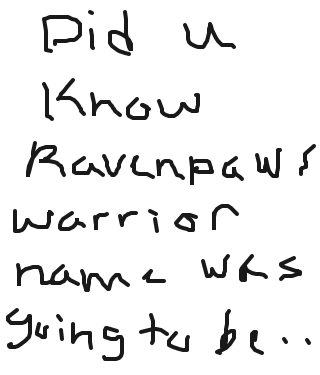 Did u
Know
Ravenpaws
warrior
name was
going to be..